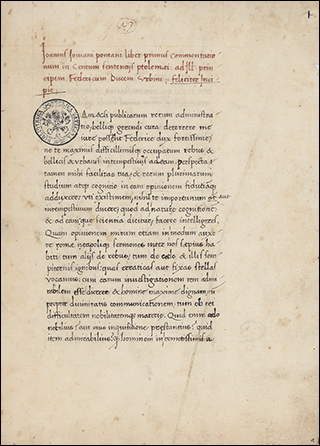 Ioannis Ioviani pontani liber primus Commentatio
num in Centum sententiis ptolomei: ad Ill. prin
cipem Federicum Ducem Urbini: feliciter inci
pit
Am & si publicarum rerum administra
tio, belliq; gerendi cura deterrere me
iure posset Federice dux fortissime:
ne te maximis difficillimisq; occupatum rebus &
bellicis & urbanis intempestivus adeam: perspecta
tamen mihi facilitas tua, & rerum plurimarum
studium atq; cognitio in eam opinionem fiduciaq;
adduxere: uti existimem, nihil te importunum aut
intempestivum ducere: quod ad naturae cognitione
& ad eam quae scientia dicitur facere intellegeres.
Quam opinionem mirum etiam in modum auxe
re romae neapoliq; sermones inter nos saepius ha
biti: cum aliis de rebus, tum de caelo & illis sem
piternis ignibus, quas erraticas aut fixas stellas
vocamus: cum earum investigationem rem admi
rabilem esse diceres & homine maxime dignam: cu
propter divinitatis communicationem, tum ob rei
difficultatem nobilitatemq; materiae. Quid enim caelo
nobilius aut eius inquisitione praestantius: quid
item admirabilius: q hominem in